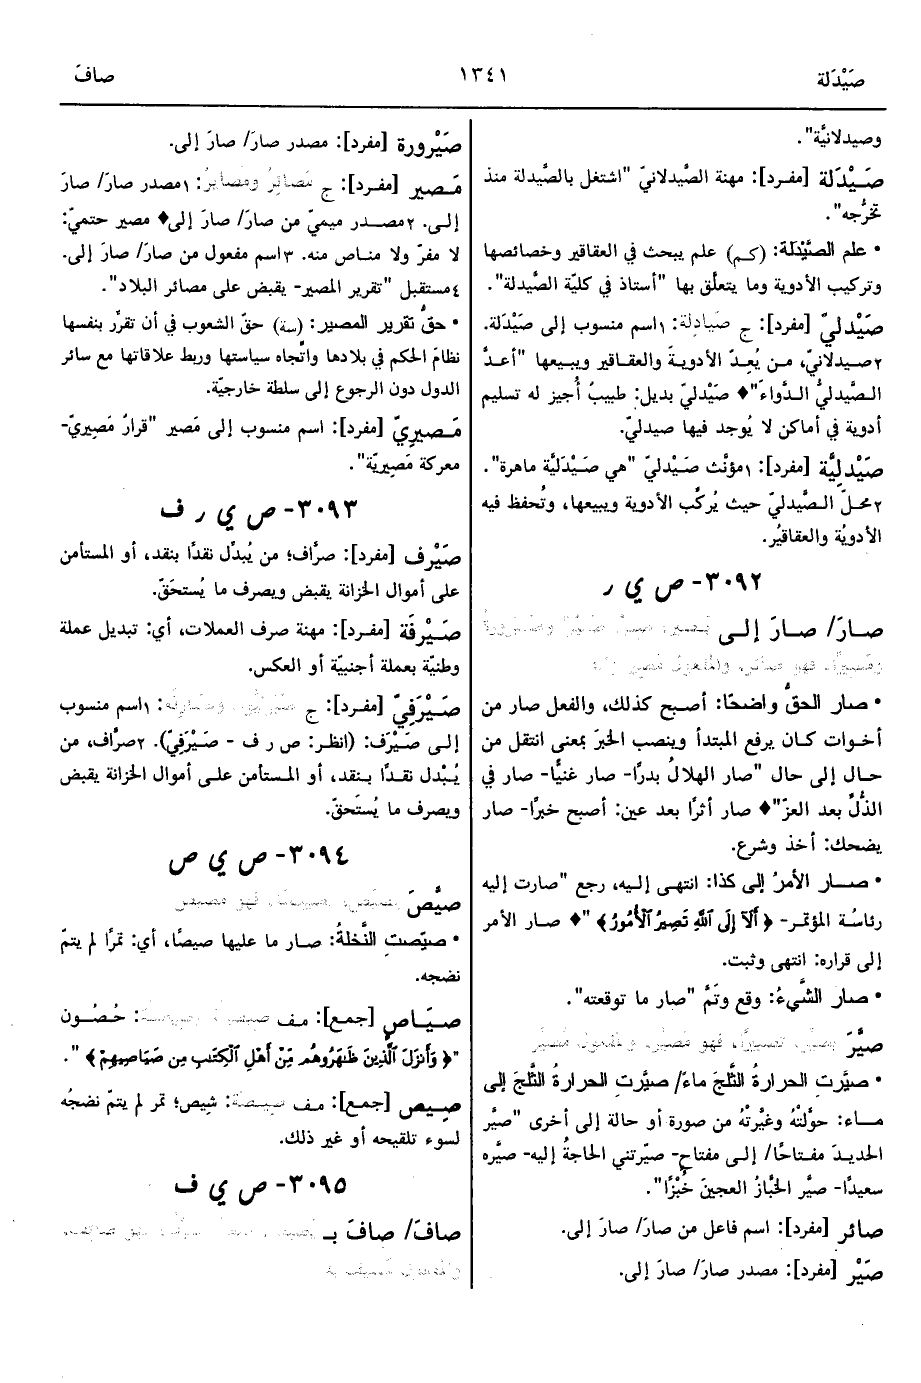 صَيْدَلة
١٣٤١
صافَ
وصيدلانيَّة".
صَيْدَلة [مفرد]: مهنة الصَّيدلانيّ "اشتغل بالصَّيدلة منذ
تخرُّجه".
• علم الصَّيْدَلة: (كم) علم يبحث في العقاقير وخصائصها
وتركيب الأدوية وما يتعلَّق بها "أستاذ في كليّة الصَّيدلة".
صَيْدليّ [مفرد]: ج صَيَادِلة: ١اسم منسوب إلى صَيْدَلة.
٢صيدلانيّ، من يُعِدّ الأدوية والعقاقير ويبيعها "أعدَّ
الصَّيدليُّ الدَّواءَ"♦ صَيْدليّ بديل: طبيبٌ أُجيز له تسليم
أدوية في أماكن لا يُوجد فيها صيدليّ.
صَيْدليَّة [مفرد]: ١مؤنَّث صَيْدليّ "هي صَيْدَليَّة ماهرة".
٢محلّ الصَّيدليّ حيث يُركَّب الأدوية ويبيعها، وتُحفظ فيه
الأدويةُ والعقاقيُر.
٣٠٩٢- ص ي ر
صارَ/ صارَ إلى
• صار الحقُّ واضحًا: أصبح كذلك، والفعل صار من
أخوات كان يرفع المبتدأ وينصب الخبَر بمعنى انتقل من
حال إلى حال "صار الهلالُ بدرًا- صار غنيًّا- صار في
الذُّلّ بعد العزّ"♦ صار أثرًا بعد عين: أصبح خبرًا- صار
يضحك: أخذ وشرع.
• صار الأمرُ إلى كذا: انتهى إليه، رجع "صارت إليه
رئاسُة المؤتمر- ﴿أَلَآ إِلَى ٱللَّهِ تَصِيرُ ٱلْأُمُورُ﴾ "♦ صار الأمر
إلى قراره: انتهى وثبت.
• صار الشَّيءُ: وقع وتَمَّ "صار ما توقعته".
صيَّرَ
• صيَّرت الحرارةُ الثَّلجَ ماءً/ صيَّرت الحرارةُ الثَّلجَ إلى
ماء: حوَّلتْهُ وغيَّرتْهُ من صورة أو حالة إلى أخرى "صيَّر
الحديدَ مفتاحًا/ إلى مفتاح- صيّرتني الحاجةُ إليه- صيَّره
سعيدًا- صيَّر الخبَّازُ العجينَ خُبْزًا".
صائر [مفرد]: اسم فاعل من صارَ/ صارَ إلى.
صَيْر [مفرد]: مصدر صارَ/ صارَ إلى.
صَيْرورة [مفرد]: مصدر صارَ/ صارَ إلى.
مَصير [مفرد]: ج مَصَائِرُ ومَصايرُ: ١مصدر صارَ/ صارَ
إلى. ٢مصدر ميميّ من صارَ/ صارَ إلى♦ مصير حتميّ:
لا مفرّ ولا مناص منه. ٣اسم مفعول من صارَ/ صارَ إلى.
٤مستقبل "تقرير المصير- يقبض على مصائر البلاد".
• حقُّ تقرير المصير: (سة) حقّ الشعوب في أن تقرِّر بنفسها
نظامَ الحكم في بلادها واتِّجاه سياستها وربط علاقاتها مع سائر
الدول دون الرجوع إلى سلطة خارجيّة.
مَصيريّ [مفرد]: اسم منسوب إلى مَصير "قرارٌ مَصِيريّ-
معركة مَصِيريّة".
٣٠٩٣- ص ي ر ف
صَيْرف [مفرد]: صرَّاف؛ من يُبدِّل نقدًا بنقد، أو المستأمن
على أموال الخزانة يقبض ويصرف ما يُستحَقّ.
صَيْرفَة [مفرد]: مهنة صرف العملات، أي: تبديل عملة
وطنيّة بعملة أجنبيّة أو العكس.
صَيْرَفيّ [مفرد]: ج صَيْرفيّون وصَيَارِفَة: ١اسم منسوب
إلى صَيْرَف: (انظر: ص ر ف - صَيْرَفيّ). ٢صرَّاف، من
يُبْدل نقدًا بنقد، أو المستأمن على أموال الخزانة يقبض
ويصرف ما يُستَحقّ.
٣٠٩٤- ص ي ص
صيَّصَ
• صيّصت النَّخلةُ: صار ما عليها صيصًا، أي: تمرًا لم يتمّ
نضجه.
صيَاصٍ [جمع]: مف صيصة: حُصُون
"﴿وَأَنزَلَ ٱلَّذِينَ ظَٰهَرُوهُم مِّنْ أَهْلِ ٱلْكِتَٰبِ مِن صَيَاصِيهِمْ﴾ ".
صِيص [جمع]: مف صِيصَة: شيص؛ تمر لم يتمّ نضجُه
لسوء تلقيحه أو غير ذلك.
٣٠٩٥- ص ي ف
صافَ/ صافَ بـ